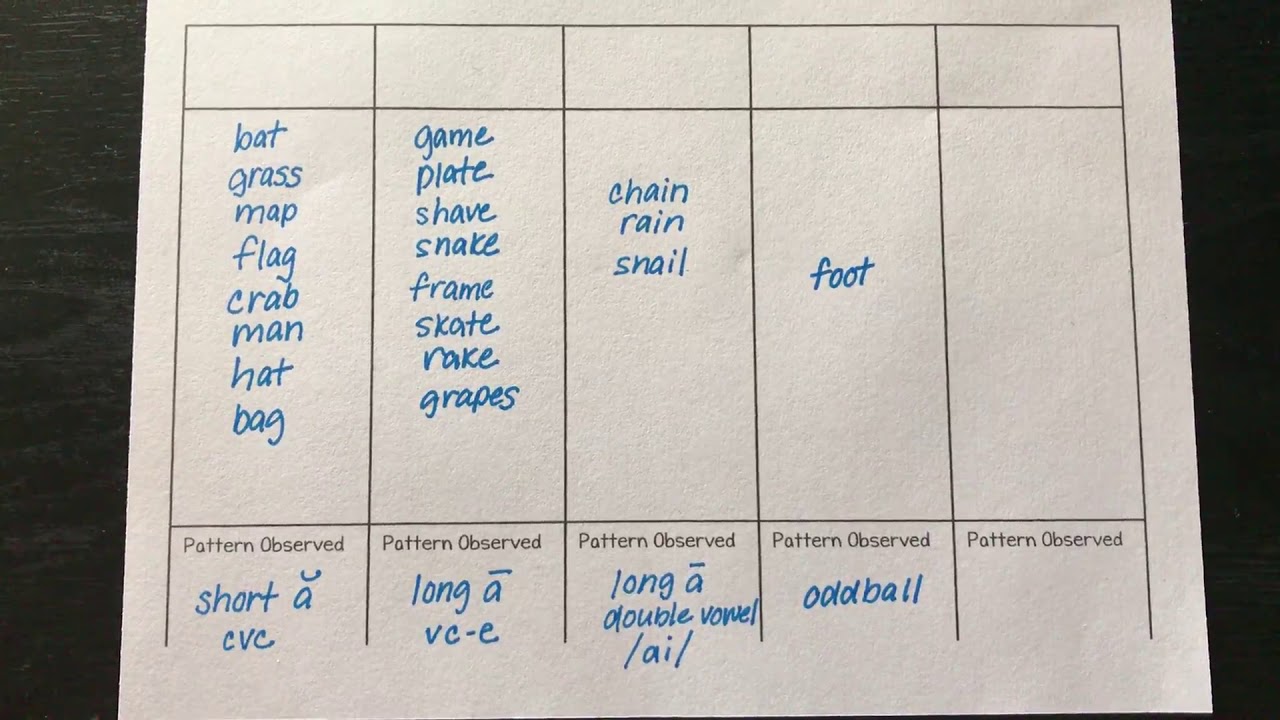 bat
grass
map
flag
crab
man
hat
bag
game
plate
shave
snake
frame
skate
rake
grapes
chain
rain
snail
foot
Pattern Observed
short ă
cvc
Pattern Observed
long ā
vc-e
Pattern Observed
long ā
double vowel
/ai/
Pattern Observed
oddball
Pattern Observed